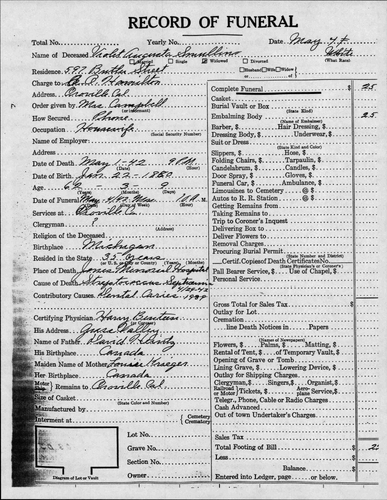 RECORD OF FUNERAL
Total No. Yearly No. Date May 4
Name of Deceased Violet White
Married Single Widowed Divorced (What Race)
Residence 597 Street Husband Wife Widow of
Charge to
Address Oroville, Cal.
Order given by Mrs. Campbell
How Secured Phone
Occupation Housewife
(Social Security Number)
Name of Employer
Address
Date of Death May 1-42 9 P.M.
Date of Birth Jan. 22-1880
Age 62-3-9
(Years) (Months) (Days)
Date of Funeral May 4/42 10 A.M.
Services at Oroville, Ca.
Clergyman ?
Religion of the Deceased
Birthplace Michigan
Resided in the State 35 Years
Place of Death Jones Memorial Hospital
Cause of Death Streptococcus
Contributory Causes Dental Caries
Certifying Physician Harry
His Address Grass Valley
Name of Father David
His Birthplace Canada
Maiden Name of Mother Louise
Her Birthplace Canada
Motor Remains to Oroville, Cal.
Size of Casket
(State Color and Number)
Manufactured by
Interment at Cemetery
Crematory
Diagram of Lot or Vault
Lot No.
Grave No.
Section No.
Owner
Complete Funeral 25
Casket
Burial Vault or Box
(State Kind)
Embalming Body 25
Barber, $ Hair Dressing, $
Dressing Body, $ Underwear, $
Suit or Dress
(State Kind and Color)
Slippers, $ Hose, $
Folding Chairs, $ Tarpaulin, $
Candelabrum, $ Candles, $
Door Spray, $ Gloves, $
Funeral Car, $ Ambulance, $
Limousines to Cemetery @ $
Autos to R. R. Station @ $
Getting Remains from
Taking Remains to
Trip to Coroner's Inquest
Delivering Box to
Deliver Flowers to
Removal Charges
Procuring Burial Permit
(State Number and District)
Certif. Copies of Death Certificate No.
Pall Bearer Service, $ Use of Chapel, $
Personal Service
Gross Total for Sales Tax $
Outlay for Lot
Cremation
line Death Notices in Papers
(Names of Newspapers)
Flowers, $ Palms, $ Matting, $
Rental of Tent, $ of Temporary Vault, $
Opening of Grave or Tomb
Lining Grave, $ Lowering Device, $
Outlay for Shipping Charges
Clergyman, $ Singers, $ Organist, $
Railroad Tickets, $ Aeroplane Service, $
Telegr., Phone, Cable or Radio Charges
Cash Advanced
Out of town Undertaker's Charges
Sales Tax
Total Footing of Bill $
Less
Balance $
Entered into Ledger, page or below.